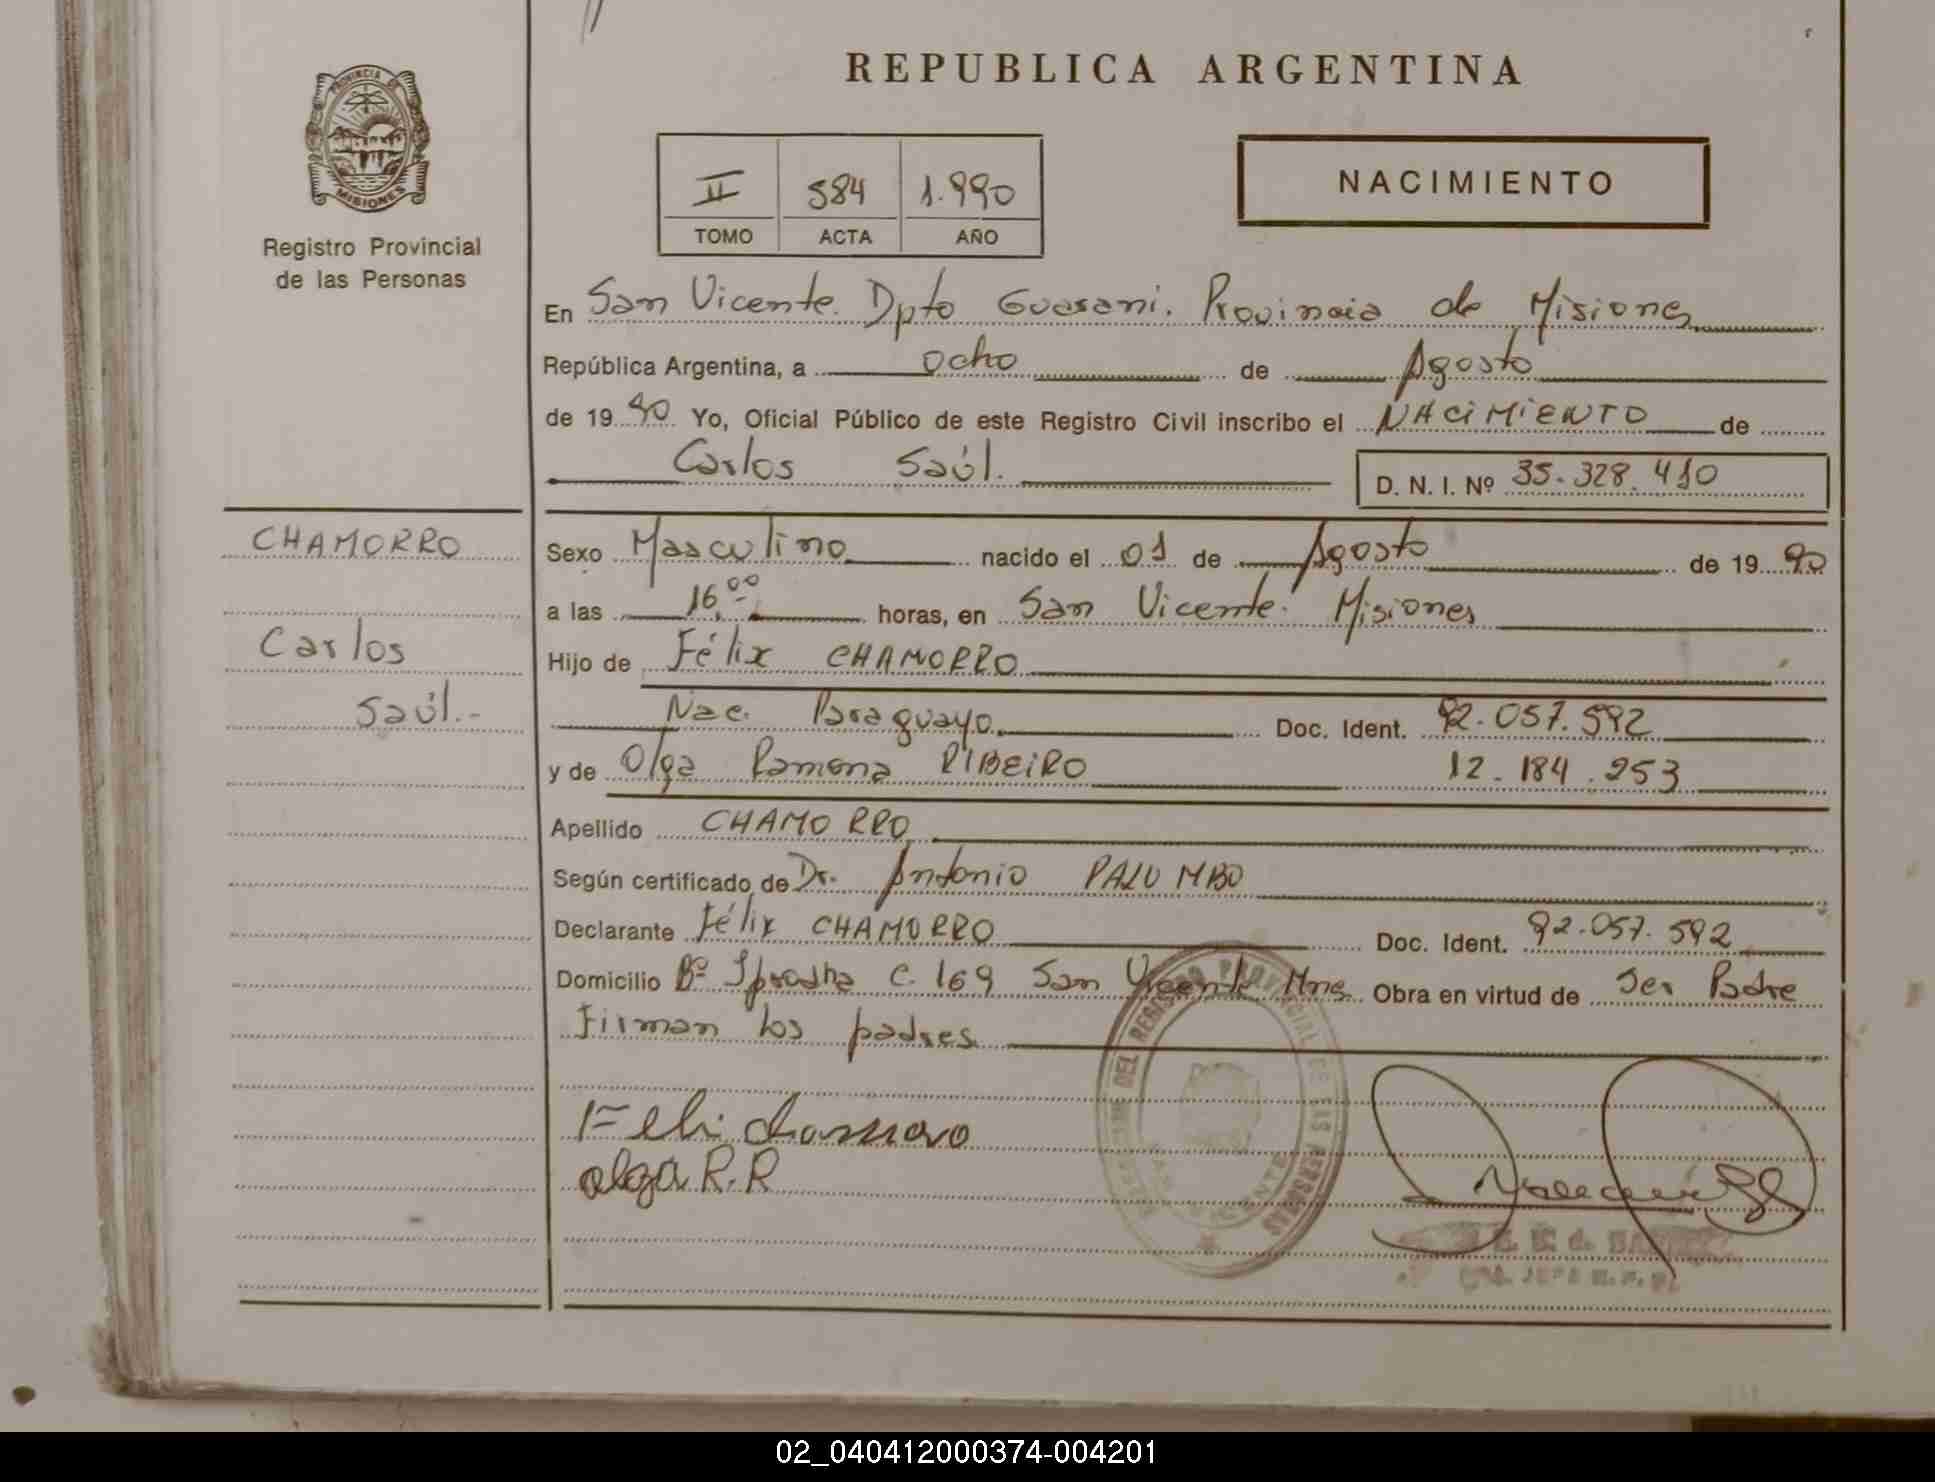 REPUBLICA ARGENTINA
PROVINCIA DE
MISIONES
Registro Provincial
de las Personas
II 584 1.990
TOMO ACTA AÑO
NACIMIENTO
En San Vicente. Dpto Guaraní. Provincia de Misiones
República Argentina, a ocho de Agosto
de 1990 Yo, Oficial Público de este Registro Civil inscribo el NACIMIENTO de
Carlos Saúl.
D. N. I. Nº 35.328.410
CHAMORRO
Carlos
Saúl.-
Sexo Masculino nacido el 01 de Agosto de 1990
a las 16,00 horas, en San Vicente. Misiones
Hijo de Félix CHAMORRO
Nac. Paraguayo. Doc. Ident. 92.057.592
y de Olga Ramona RIBEIRO 12.184.253
Apellido CHAMORRO
Según certificado de Dr. Antonio PALUMBO
Declarante Félix CHAMORRO Doc. Ident. 92.057.592
Domicilio Bº C. 169 San Vicente Mnes. Obra en virtud de Ser Padre
Firman los padres
DEL REGISTRO PROVINCIAL DE LAS PERSONAS
olga R.R
02_040412000374-004201